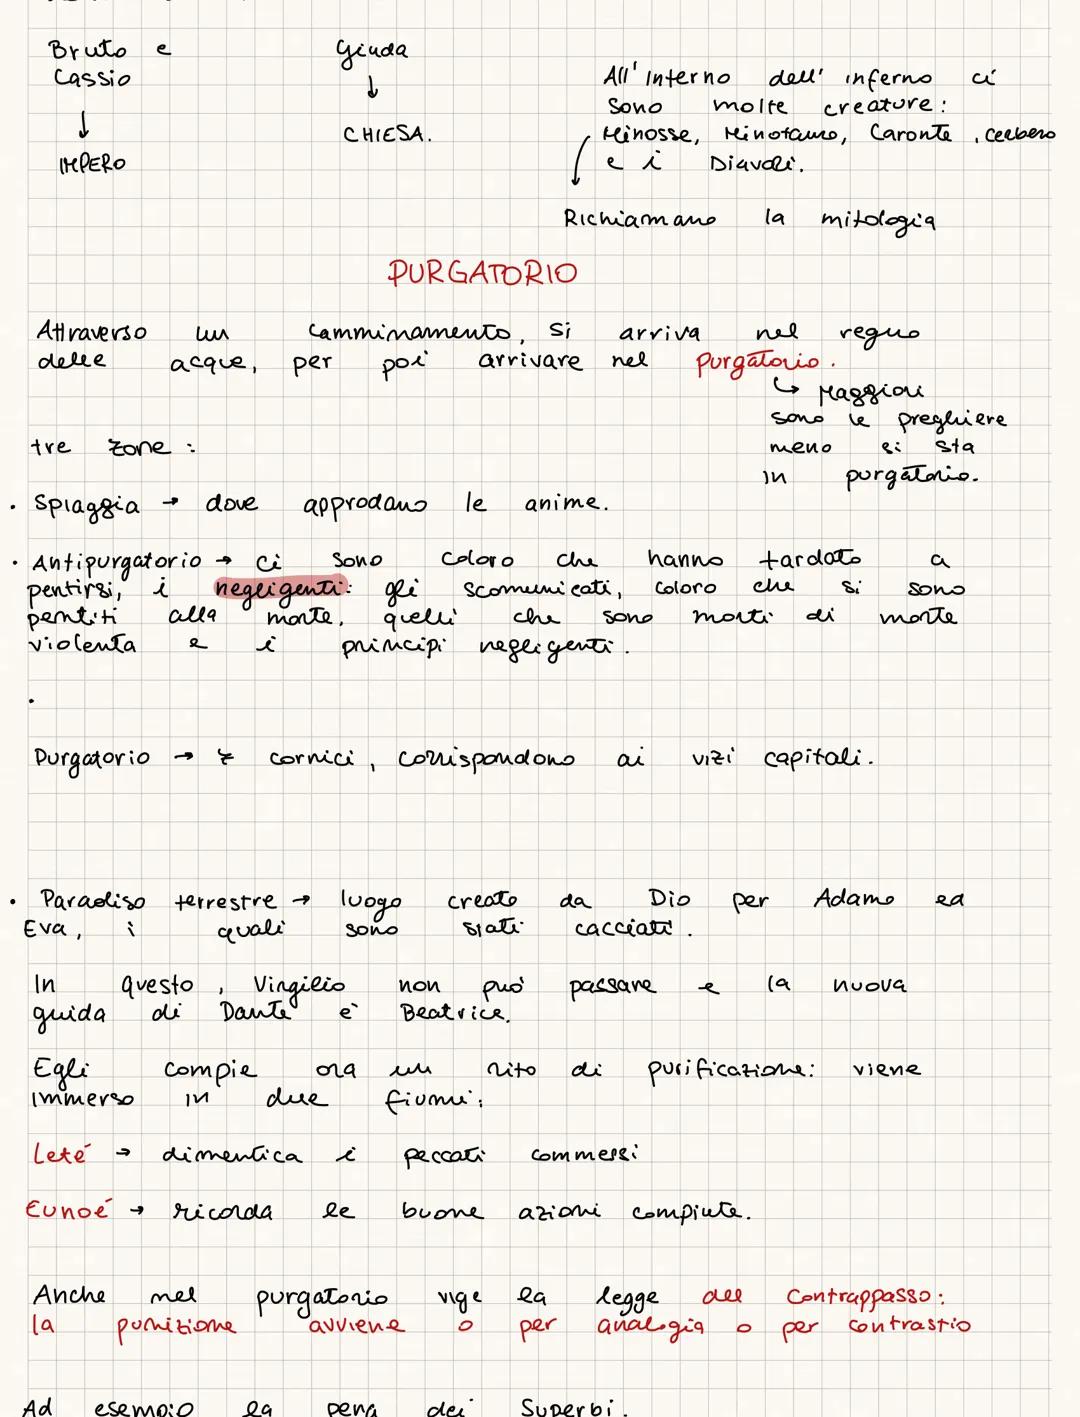 Bruto e
Cassio
↓
IMPERO
Giuda
↓
CHIESA.
All' interno dell' inferno ci
sono molte creature:
Minosse, Minotauro, Caronte, cerbero
e i Diavoli.
Richiamano la mitologia
PURGATORIO
Attraverso un camminamento, si arriva nel regno
delle acque, per poi arrivare nel purgatorio.
↳ Maggiori
sono le preghiere
meno si sta
in purgatorio.
tre zone:
• Spiaggia → dove approdano le anime.
• Antipurgatorio → ci sono coloro che hanno tardato a
pentirsi, i negligenti: gli scomunicati, coloro che si sono
pentiti alla morte, quelli che sono morti di morte
violenta e i principi negligenti.
•
Purgatorio → 7 cornici, corrispondono ai vizi capitali.
• Paradiso terrestre → luogo creato da Dio per Adamo ed
Eva, i quali sono stati cacciati.
In questo, Virgilio non può passare e la nuova
guida di Dante è Beatrice.
Egli compie ora un rito di purificazione: viene
immerso in due fiumi:
Leté → dimentica i peccati commessi
Eunoé → ricorda le buone azioni compiute.
Anche nel purgatorio vige la legge del contrappasso:
la punizione avviene o per analogia o per contrastio
Ad esempio la pena dei Superbi.